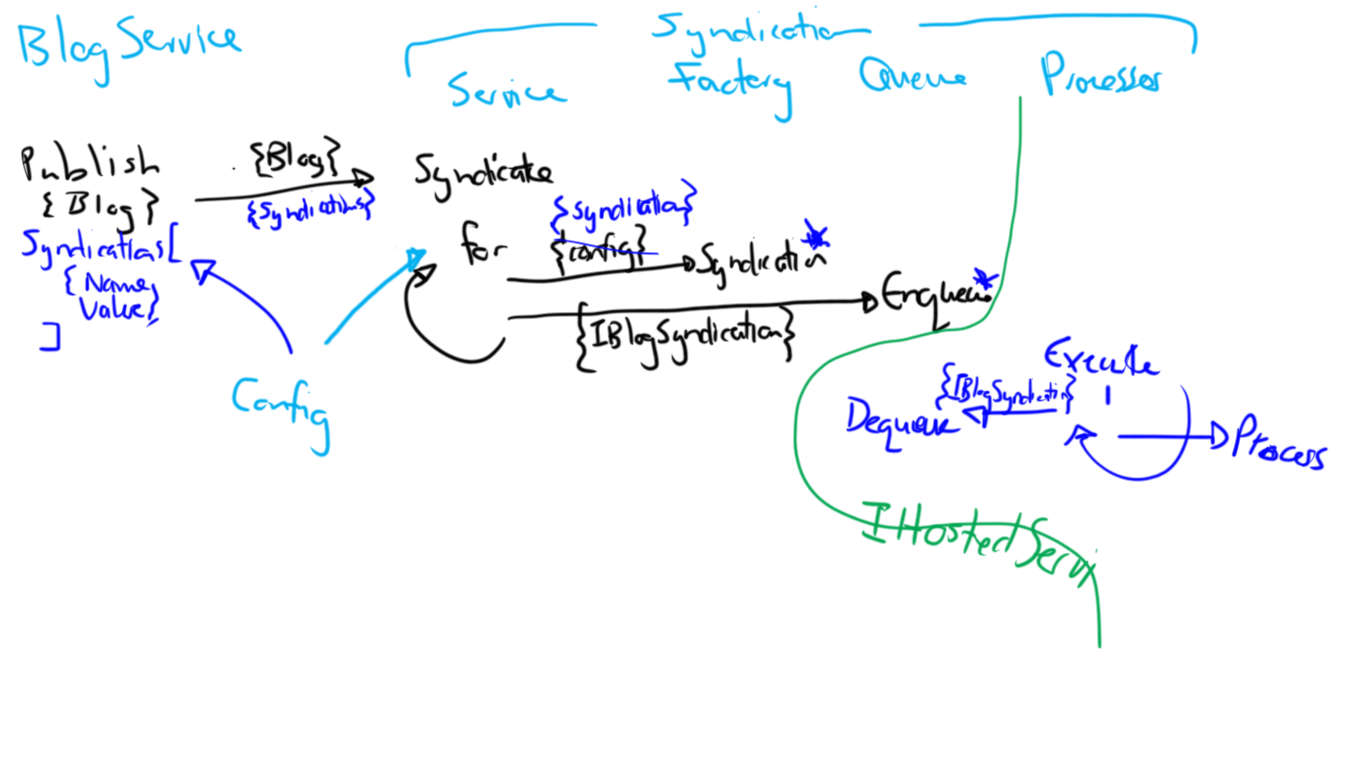 BlogService
Syndication
Service Factory Queue Processor
Publish
{Blog}
Syndications[
{Name,
Value}
]
{Blog}
{Syndications}
Syndicate
for
{Syndication}
{config}
Syndication*
{IBlogSyndication}
Enqueue*
Config
Execute
{IBlogSyndication}
Dequeue
Process
IHostedServi